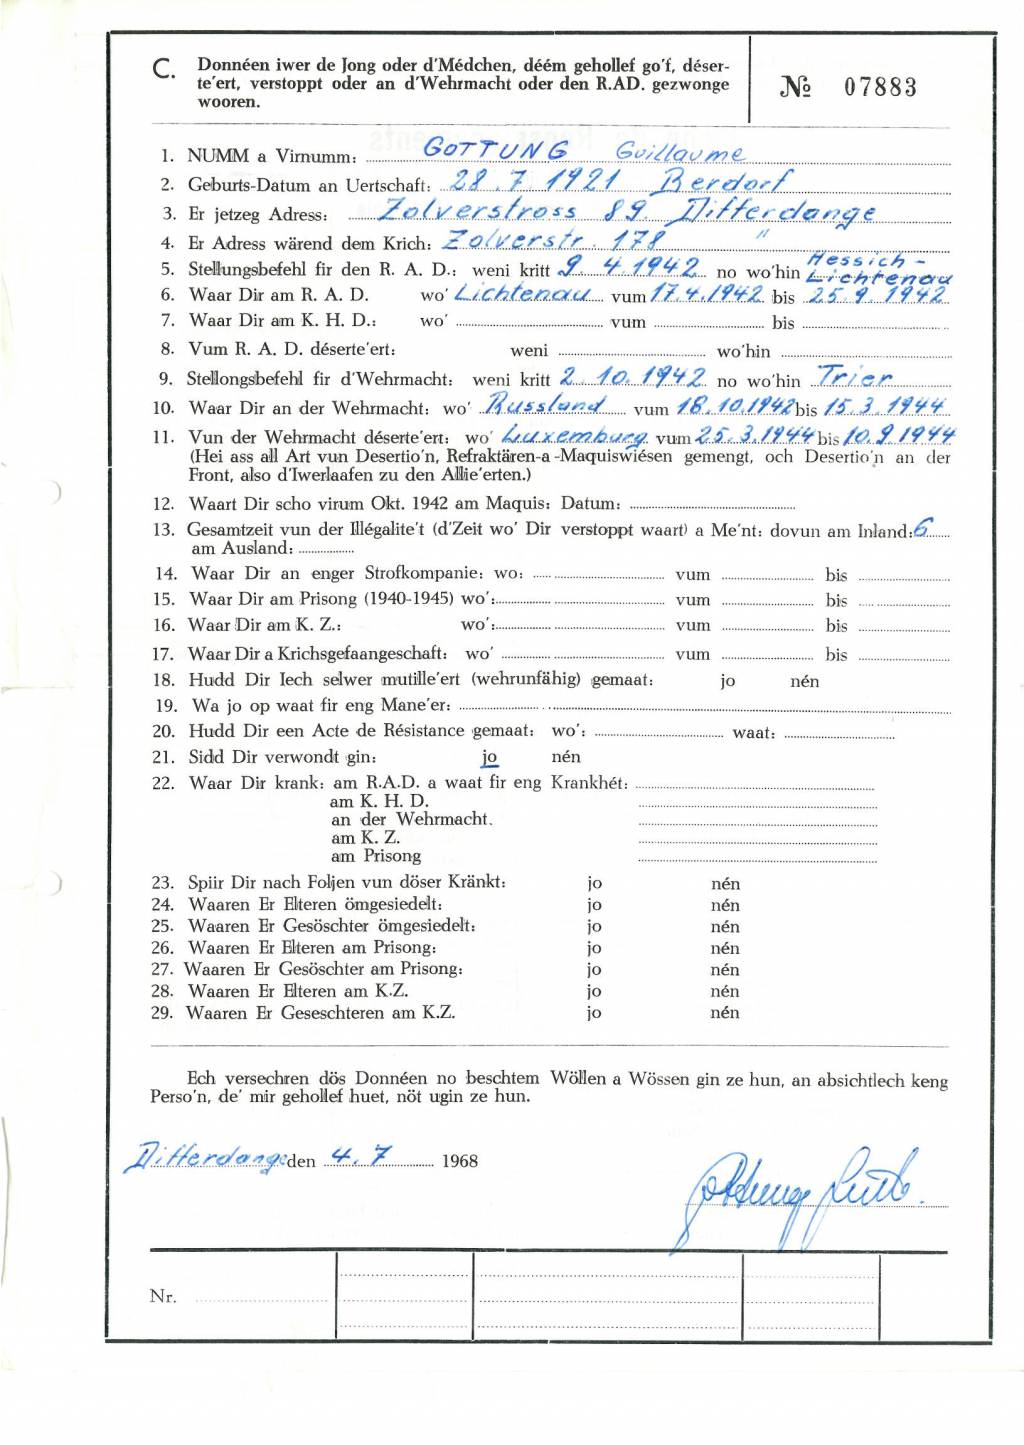 C. Donnéen iwer de Jong oder d'Médchen, déém gehollef go'f, déser-
te'ert, verstoppt oder an d'Wehrmacht oder den R.AD. gezwonge
wooren.
№ 07883
1. NUMM a Virnumm: GOTTUNG Guillaume
2. Geburts-Datum an Uertschaft: 28.7.1921 Berdorf
3. Er jetzeg Adress: Zolverstross 89. Differdange
4. Er Adress wärend dem Krich: Zolverstr. 178 "
5. Stellungsbefehl fir den R. A. D.: weni kritt 9. 4.1942 no wo'hin Hessich-
Lichtenau
6. Waar Dir am R. A. D. wo' Lichtenau vum 17.4.1942 bis 25.9.1942
7. Waar Dir am K. H. D.: wo' vum bis
8. Vum R. A. D. déserte'ert: weni wo'hin
9. Stellongsbefehl fir d'Wehrmacht: weni kritt 2.10.1942 no wo'hin Trier
10. Waar Dir an der Wehrmacht: wo' Russland vum 18.10.1942 bis 15.3.1944
11. Vun der Wehrmacht déserte'ert: wo' Luxemburg vum 25.3.1944 bis 10.9.1944
(Hei ass all Art vun Desertio'n, Refraktären-a-Maquiswiésen gemengt, och Desertio'n an der
Front, also d'Iwerlaafen zu den Allie'erten.)
12. Waart Dir scho virum Okt. 1942 am Maquis: Datum:
13. Gesamtzeit vun der Illégalite't (d'Zeit wo' Dir verstoppt waart) a Me'nt: dovun am Inland: 6
am Ausland:
14. Waar Dir an enger Strofkompanie: wo: vum bis
15. Waar Dir am Prisong (1940-1945) wo': vum bis
16. Waar Dir am K. Z.: wo': vum bis
17. Waar Dir a Krichsgefaangeschaft: wo' vum bis
18. Hudd Dir Iech selwer mutille'ert (wehrunfähig) gemaat: jo nén
19. Wa jo op waat fir eng Mane'er:
20. Hudd Dir een Acte de Résistance gemaat: wo': waat:
21. Sidd Dir verwondt gin: jo nén
22. Waar Dir krank: am R.A.D. a waat fir eng Krankhét:
am K. H. D.
an der Wehrmacht.
am K. Z.
am Prisong
23. Spiir Dir nach Foljen vun döser Kränkt: jo nén
24. Waaren Er Elteren ömgesiedelt: jo nén
25. Waaren Er Gesöschter ömgesiedelt: jo nén
26. Waaren Er Elteren am Prisong: jo nén
27. Waaren Er Gesöschter am Prisong: jo nén
28. Waaren Er Elteren am K.Z. jo nén
29. Waaren Er Geseschteren am K.Z. jo nén
Ech versechren dös Donnéen no beschtem Wöllen a Wössen gin ze hun, an absichtlech keng
Perso'n, de' mir gehollef huet, nöt ugin ze hun.
Differdange den 4.7 1968
Nr.